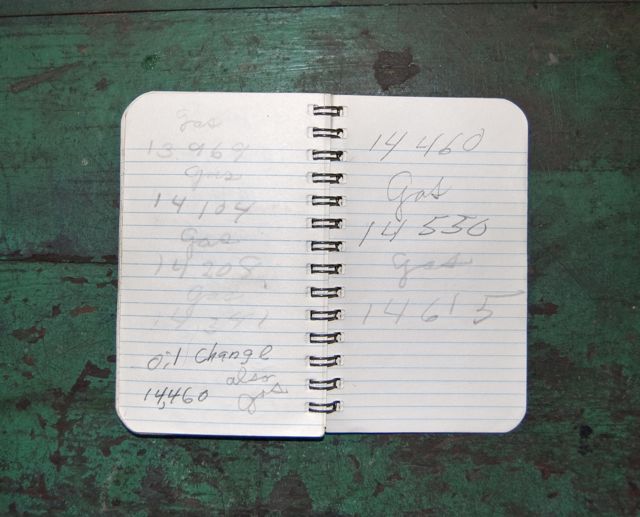 gas
13 969
gas
14 104
gas
14 208
gas
14 341
oil change
also
14,460 gas
14 460
gas
14 530
gas
14 615